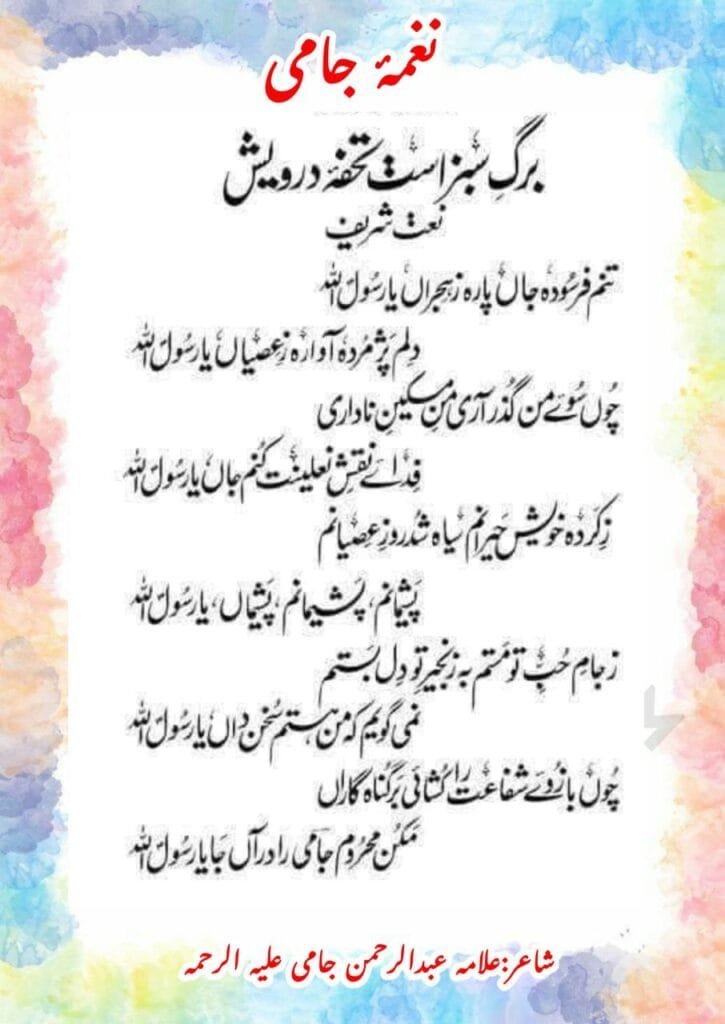 نغمۂ جامی
برگِ سبز است تحفۂ درویش
نعت شریف
تنم فرسُودہ جاں پارہ زہجراں یا رسُولَ اللہ
دِلم پَژمُردہ آوارہ زِعصیاں یا رسُولَ اللہ
چُوں سُوۓ من گُذر آری منِ مسکیں ناداری
فِداۓ نقشِ نعلینت کُنم جاں یا رسُولَ اللہ
زِکردہ خویش حیرانم سیاہ شُد روزِ عِصیانم
پشیمانم، پشیمانم، پشیماں، یا رسُولَ اللہ
زجامِ حُبِّ تو مَستم بہ زنجیرِ تو دِل بَستم
نمی گویم کہ من ہستم سُخن داں یا رسُولَ اللہ
چُوں بازُوۓ شفاعت را کُشائی بَر گُناہ گاراں
مَکُن محرُوم جامی را دراں جَا یا رسُولَ اللہ
شاعر:علامہ عبدالرحمن جامی علیہ الرحمہ